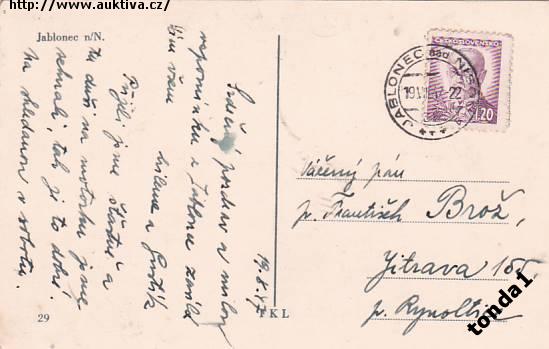 http://www.auktiva.cz/
Jablonec n/N.
Srdečný pozdrav a milou
z Jablonce zasílá
Vám všem
a
19.8.47
Přijeli jsme šťastně a
ta duši na motorku jsme
nehnali, tak je to dobré.
na shledanou v sobotu.
29
FKL
JABLONEC nad NISOU
ČESKOSLOVENSKO
1.20
Vážený pán
p. František Brož,
Jitrava 155
p. Rynoltice
tonda1